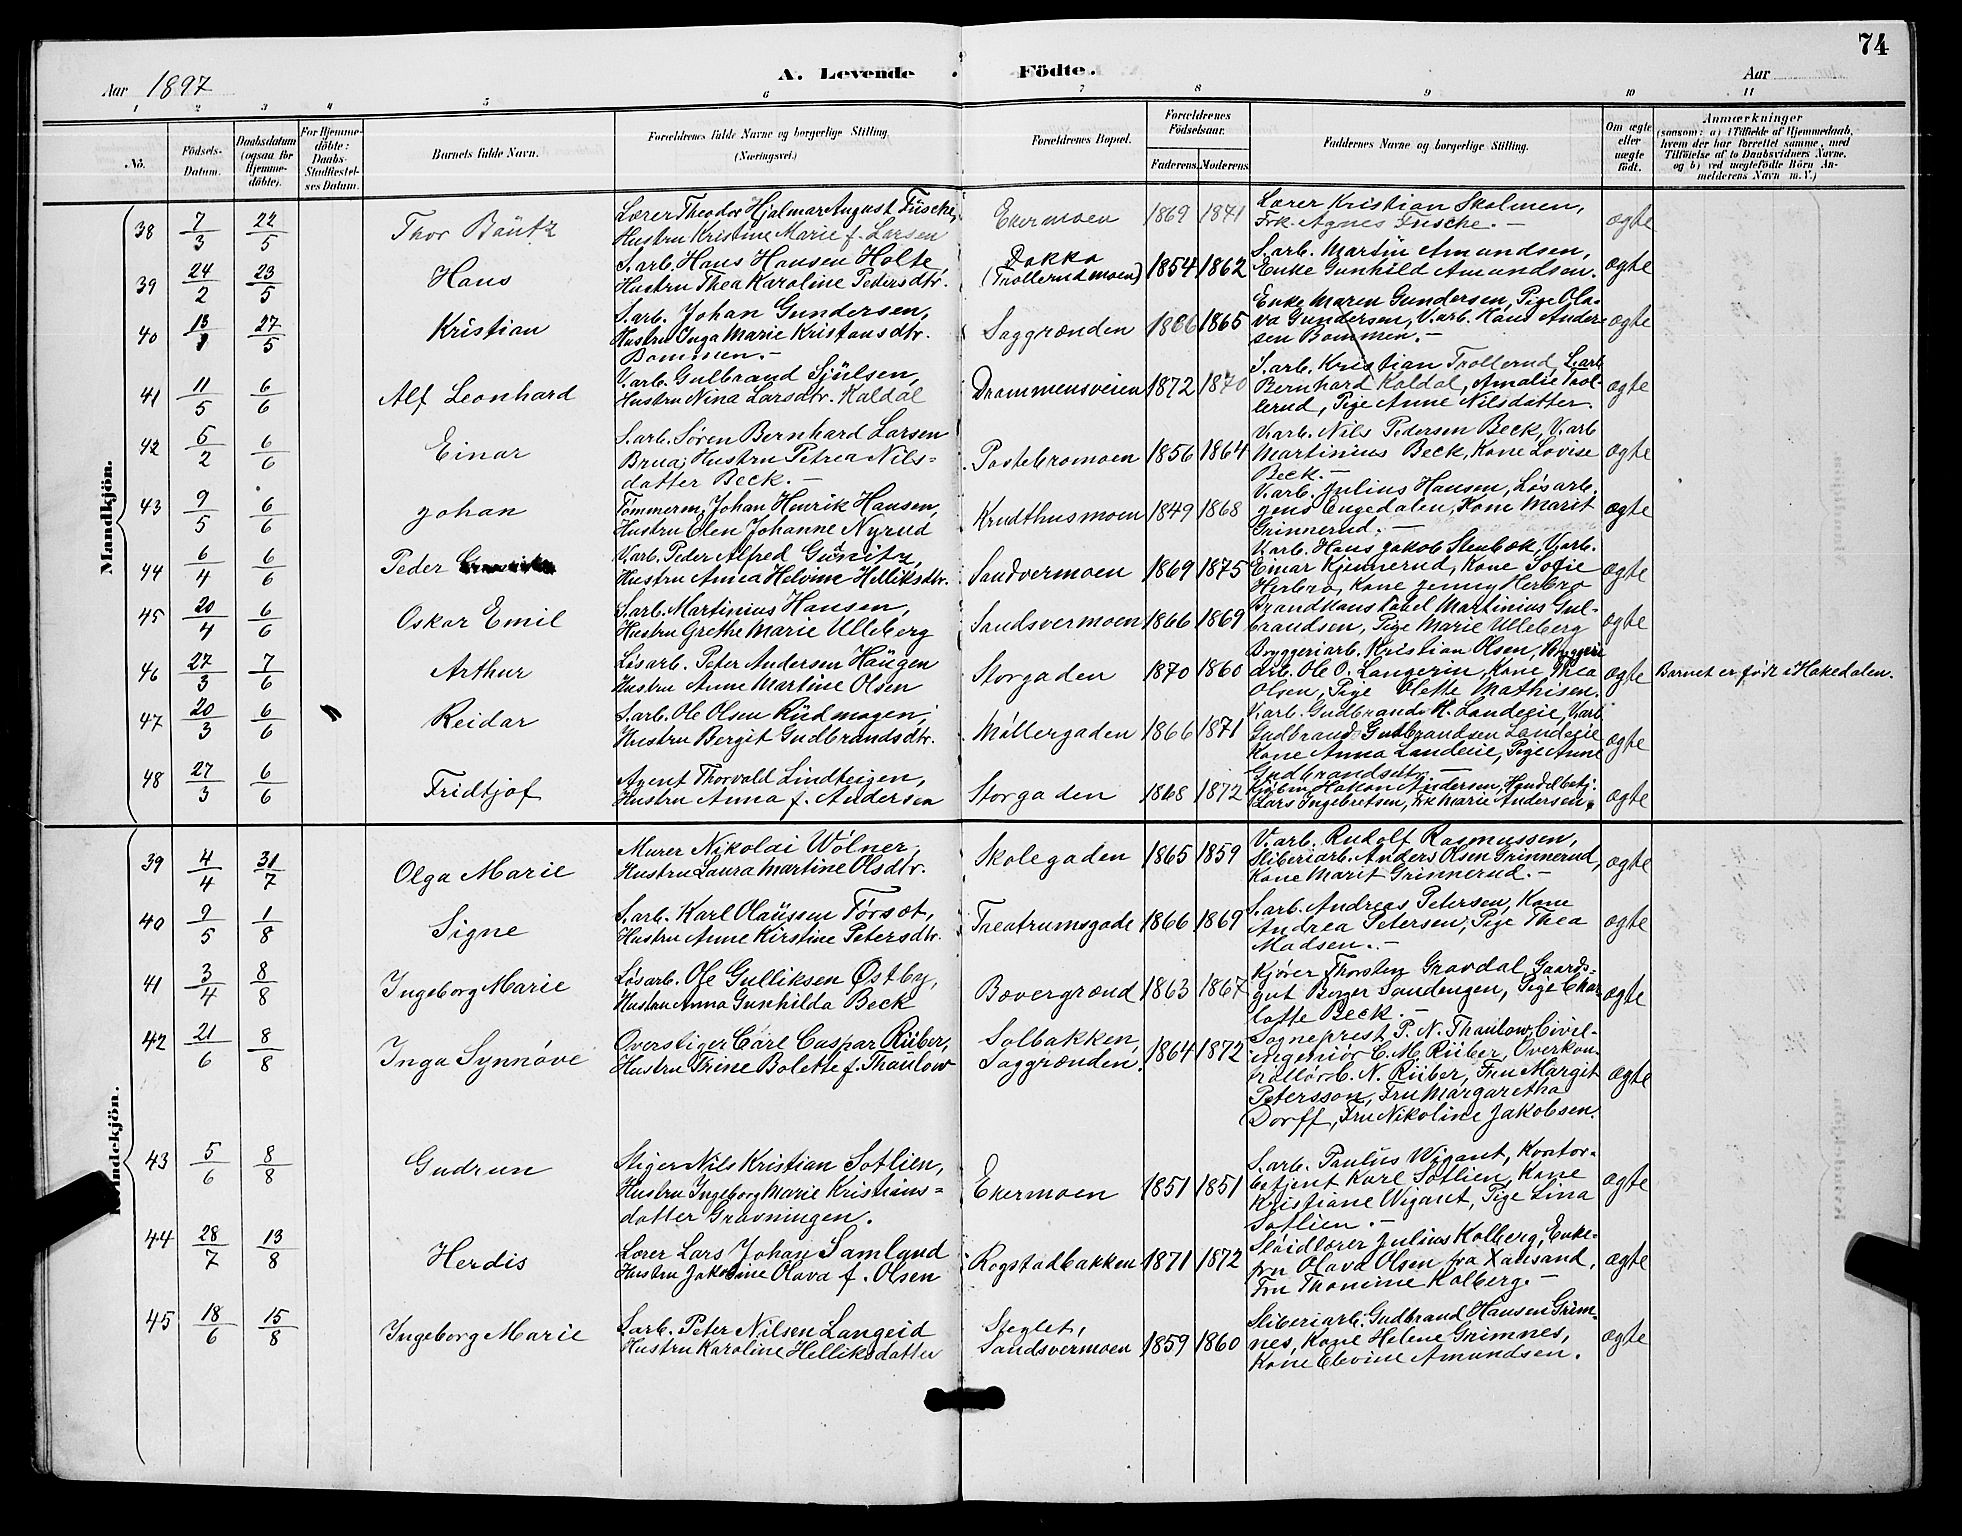 74
Aar 1897
A. Levende Födte.
Aar
1 2 3 4 5 6 7 8 9 10 11
No.
Födsels-Datum.
Daabsdatum (ogsaa for Hjemmedöbte).
For Hjemmedöbte: Daabs-Stadfæstelses Datum.
Barnets fulde Navn.
Forældrenes fulde Navne og borgerlige Stilling. (Næringsvei.)
Forældrenes Bopæl.
Forældrenes Födselsaar.
Faderens. Moderens.
Faddernes Navne og borgerlige Stilling.
Om ægte eller uægte födt.
Anmærkninger
(saasom: a) i Tilfælde af Hjemmedaab, hvem der har forrettet samme, med Tilföielse af to Daabsvidners Navne, og b) ved uægtefödte Börn Anmelderens Navn m. V.)
Mandkjön.
38 7/3 22/5 Thor Bäntz
Lærer Theodor Hjalmar August Füsche,
Hustru Kristine Marie f. Larsen
Ekermoen 1869 1871
Lærer Kristian Skolmen,
Frk. Agnes Füsche. -
ægte
39 24/2 23/5 Hans
S.arb. Hans Hansen Holte
Hustru Thea Karoline Pedersdtr.
Dokka
(Trollerudmoen) 1854 1862
S.arb. Martin Amundsen,
Enke Gunhild Amundsen.
ægte
40 13/1 27/5 Kristian
S.arb. Johan Gundersen,
Hustru Inga Marie Kristansdtr.
Bommen. -
Saggrænden 1866 1865
Enke Maren Gundersen, Pige Ola-
va Gundersen, V.arb. Hans Ander-
sen Bommen. -
ægte
41 11/5 6/6 Alf Leonhard
V.arb. Gulbrand Sjülsen,
Hustru Nina Larsdtr. Kaldal
Drammensveien 1872 1870
S.arb. Kristian Trollerud, S.arb
Bernhard Kaldal, Amalie Trol-
lerud, Pige Anne Nilsdatter.
ægte
42 5/2 6/6 Einar
S.arb. Søren Bernhard Larsen
Brua; Hustru Petrea Nils=
datter Beck. -
Portebromoen 1856 1864
V.arb. Nils Pedersen Beck, V.arb
Martinius Beck, Kone Lovise
Beck. -
ægte
43 9/5 6/6 Johan
Tømmerm. Johan Henrik Hansen,
Hustru Elen Johanne Nyrud
Krudthusmoen 1849 1868
V.arb. Julius Hansen, Løsarb.
Jens Engedalen, Kone Marit
Grinnerud. -
ægte
44 6/4 6/6 Peder
V.arb. Peder Alfred
Hustru Anna Helvine Helliksdtr.
Sandvermoen 1869 1875
V.arb. Hans Jakob Stenbæk, V.arb.
Einar Kjennerud, Kone Sofie
Herbro, Kone Jenny Herbro
ægte
45 20/4 6/6 Oskar Emil
S.arb. Martinius Hansen,
Hustru Grethe Marie Ulleberg
Sandsvermoen 1866 1869
Brandkonstabel Martinius Gul-
brandsen, Pige Marie Ulleberg
ægte
46 27/3 7/6 Arthur
Løsarb. Peter Andersen Haugen
Hustru Anne Martine Olsen
Storgaden 1870 1860
Bryggeriarb. Kristian Olsen, Bryggeri
arb. Ole O. Langerin, Kone Thea
Olsen, Pige Olette Mathisen.
ægte
Barnet er født i Hakedalen.
47 20/3 6/6 Reidar
S.arb. Ole Olsen Rüdmogen,
Hustru Bergit Gudbrandsdtr.
Møllergaden 1866 1871
V.arb. Gudbrand H. Landeeie, V.arb
Gudbrand Gulbrandsen Landeeie
Kone Anna Landeeie, Pige Anne
Gudbrandsdtr. -
ægte
48 27/3 6/6 Fridtjof
Agent Thorvald Lindteigen,
Hustru Anna f. Andersen
Storgaden 1868 1872
Kjøbm Hakon Andersen, Handelsbetj:
Lars Ingebretsen, Frk Marie Andersen.
ægte
Kvindekjön.
39 4/4 31/7 Olga Marie
Murer Nikolai Wölner,
Hustru Laura Martine Olsdtr.
Skolegaden 1865 1859
V.arb. Rudolf Rasmussen,
Sliberiarb. Anders Olsen Grinnerud,
Kone Marit Grinnerud. -
ægte
40 9/5 1/8 Signe
S.arb. Karl Olaüssen Førsøt,
Hustru Anne Kirstine Petersdtr.
Theatrumsgade 1866 1869
S.arb. Andreas Petersen, Kone
Andrea Petersen, Pige Thea
Madsen. -
ægte
41 3/4 8/8 Ingeborg Marie
Løsarb. Ole Gulliksen Østby,
Hustru Anna Gunhilda Beck
Bævergrænd 1863 1867
Kjører Thorsten Gravdal, Gaards=
gut Birger Sandengen, Pige Char
lotte Beck. -
ægte
42 21/6 8/8 Inga Synnøve
Overstiger Carl Caspar Riiber,
Hustru Trine Bolette f. Thaulow
Solbakken,
Saggrænden. 1864 1872
Sogneprest P. N. Thaulow, Civil-
ingeniør C. M. Riiber, Overkon-
trollør C. N. Riiber, Fru Margit
Petersson, Fru Margaretha
Dorff, Fru Nikoline Jakobsen.
ægte
43 5/6 8/8 Gudrun
Stiger Nils Kristian Sotlien,
Hustru Ingeborg Marie Kristians=
datter Gravningen.
Ekermoen 1851 1851
S.arb. Paulus Wigant, Kontor-
betjent Karl Sotlien, Kone
Kristiane Wigant, Pige Lina
Sotlien. -
ægte
44 28/7 13/8 Herdis
Lærer Lars Johan Samland
Hustru Jakobine Olava f. Olsen
Rogstadbakken 1871 1872
Sløidlærer Julius Kolberg, Enke-
fru Olava Olsen fra Xansand,
Fru Thomine Kolberg. -
ægte
45 18/6 15/8 Ingeborg Marie
S.arb. Peter Nilsen Langeid
Hustru Karoline Helliksdatter
Steglet,
Sandsvermoen 1859 1860
Sliberiarb. Gudbrand Hansen Grim-
nes, Kone Helene Grimnes,
Kone Elevine Amundsen.
ægte